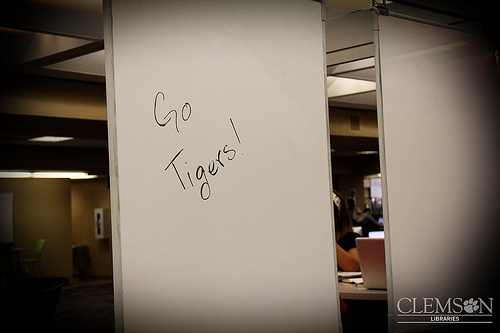 Go
Tigers!
CLEMSON
LIBRARIES